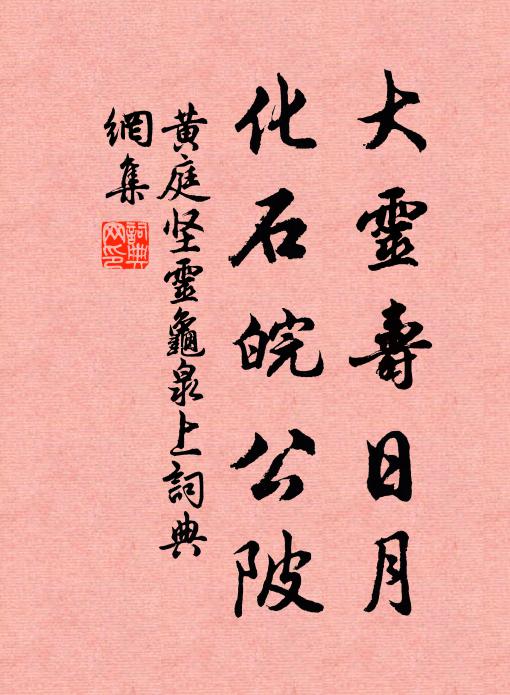 大靈壽日月
化石皖公陂
黃庭坚靈龜泉上詞典
網集
詞典
网印